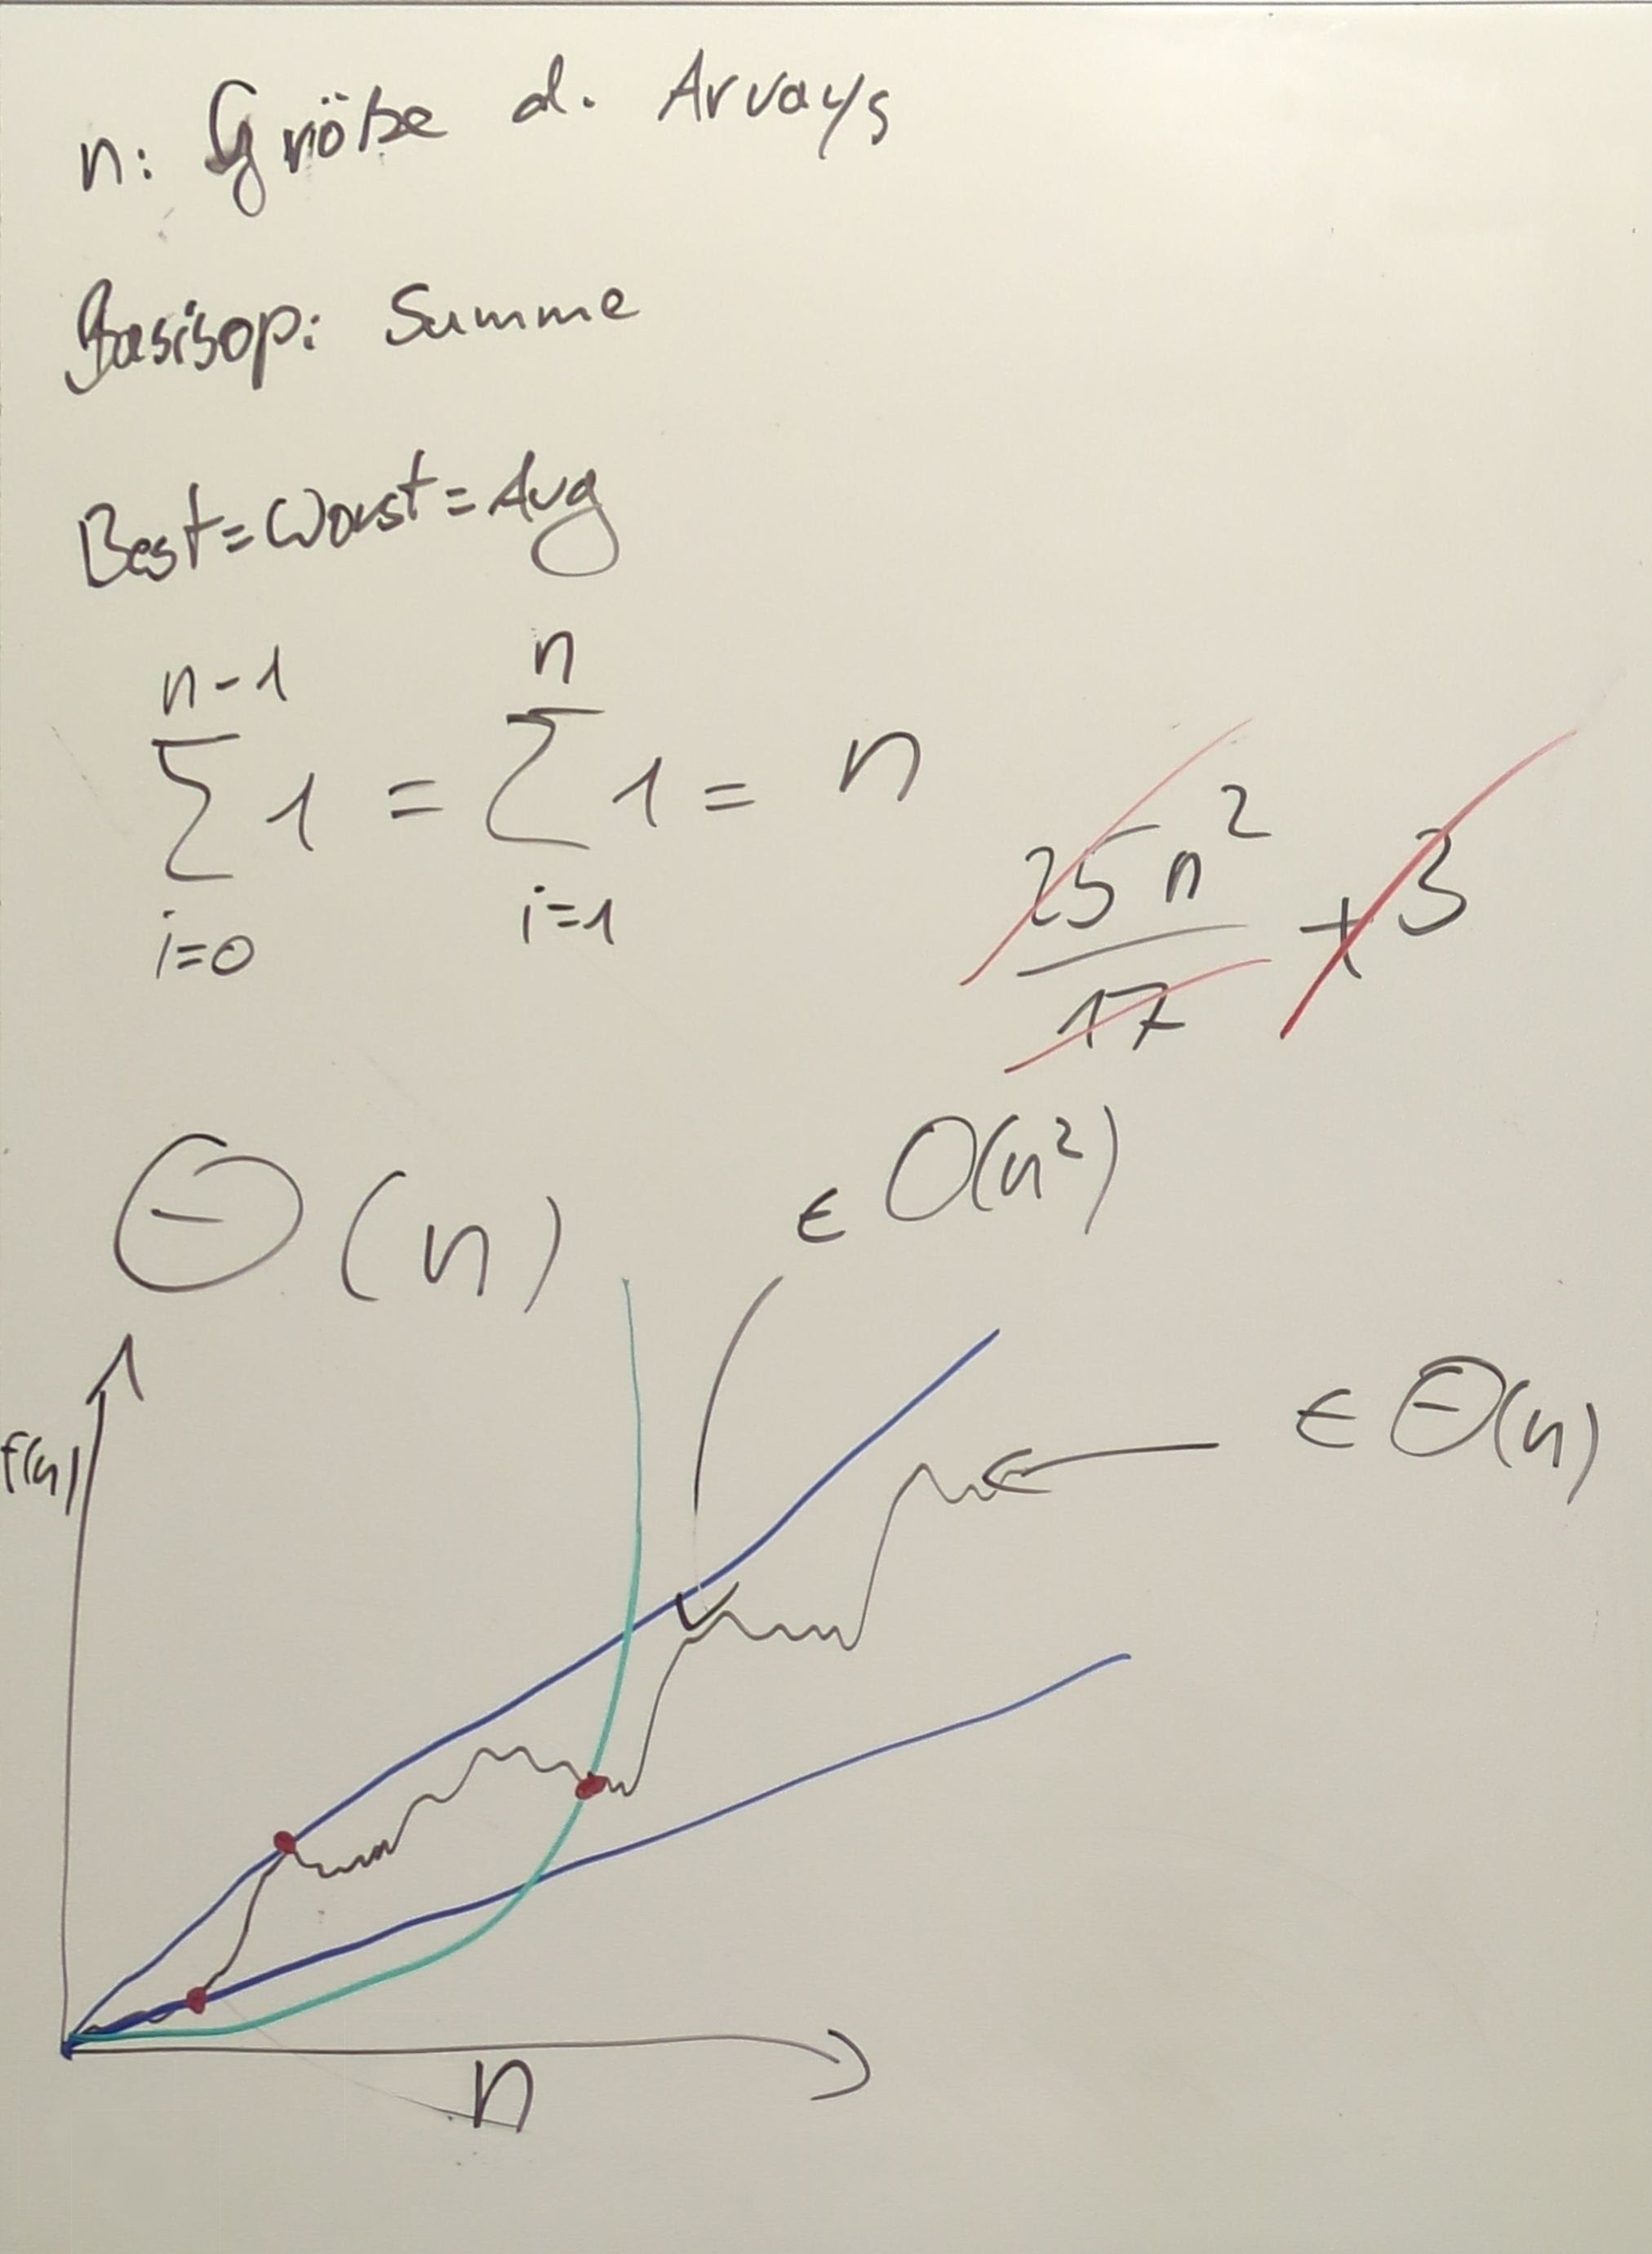 n: Größe d. Arrays
Basisop: Summe
Best=Worst=Avg
n-1 n
∑ 1 = ∑ 1 = n
i=0 i=1
25 n² + 3
17
Θ(n)
∈ O(n²)
f(n)
∈ Θ(n)
n